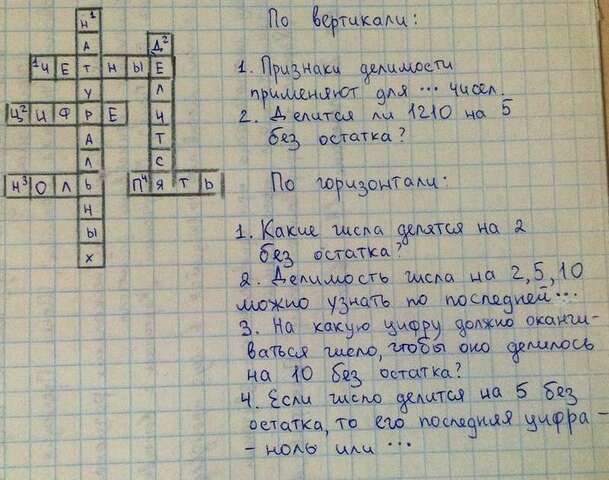 Н¹АТУРАЛЬНЫХ
Д²ЕЛИТСЯ
¹ЧЕТНЫЕ
Ц²ИФРЕ
Н³ОЛЬ
П⁴ЯТЬ
По вертикали:
1. Признаки делимости
применяют для ... чисел.
2. Делится ли 1210 на 5
без остатка?
По горизонтали:
1. Какие числа делятся на 2
без остатка?
2. Делимость числа на 2,5,10
можно узнать по последней...
3. На какую цифру должно оканчи-
ваться число, чтобы оно делилось
на 10 без остатка?
4. Если число делится на 5 без
остатка, то его последняя цифра-
- ноль или ...